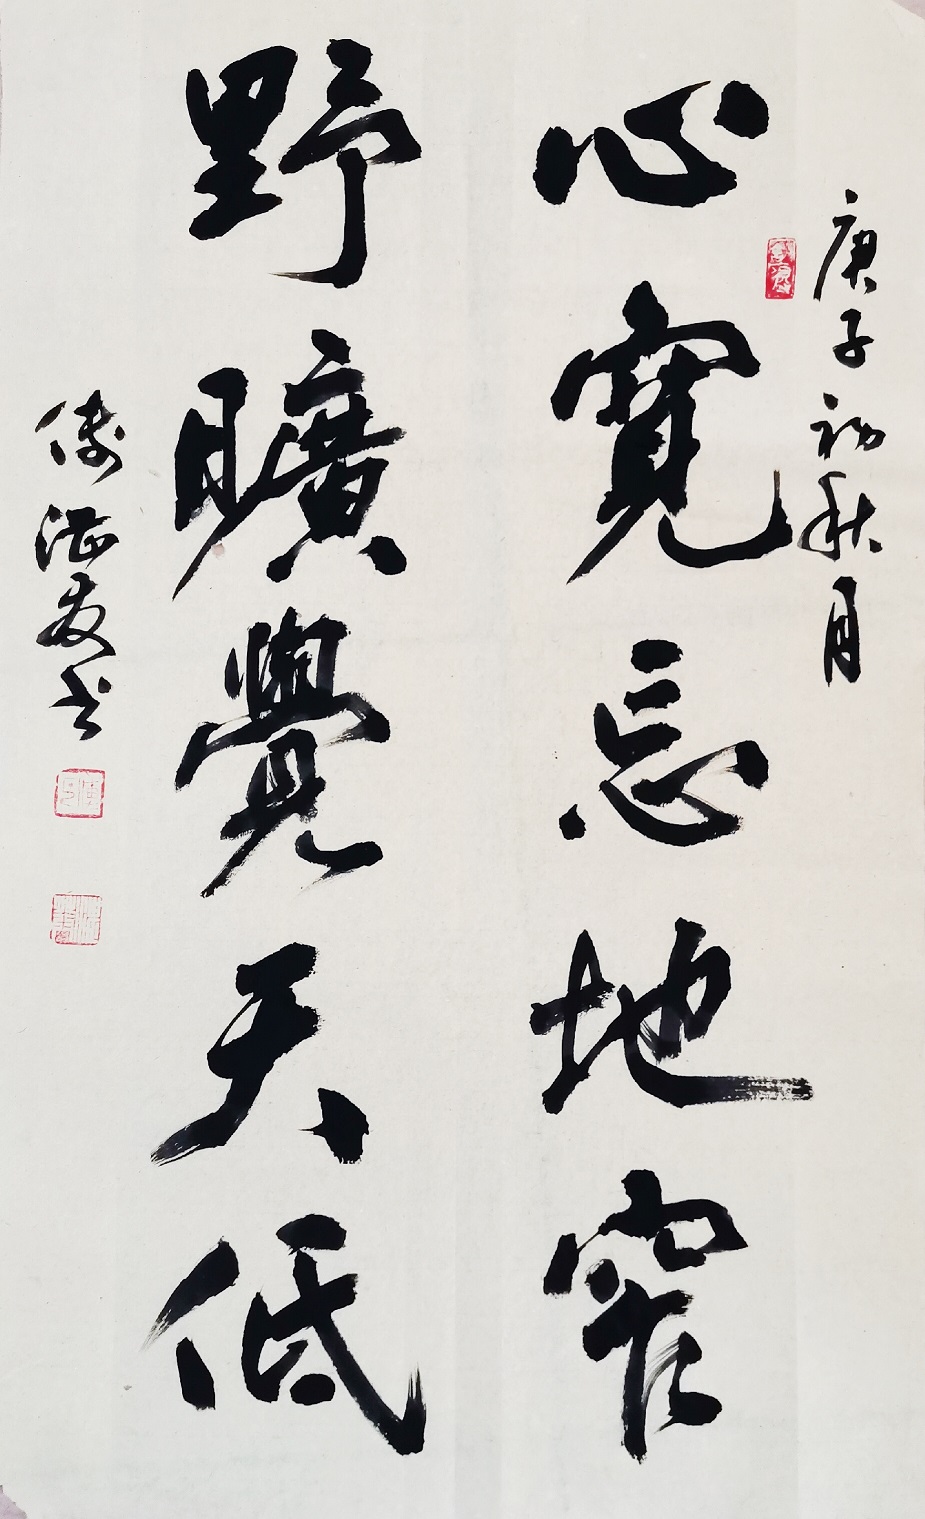 庚子初秋月
心寬忘地窄
野曠覺天低
傅友书